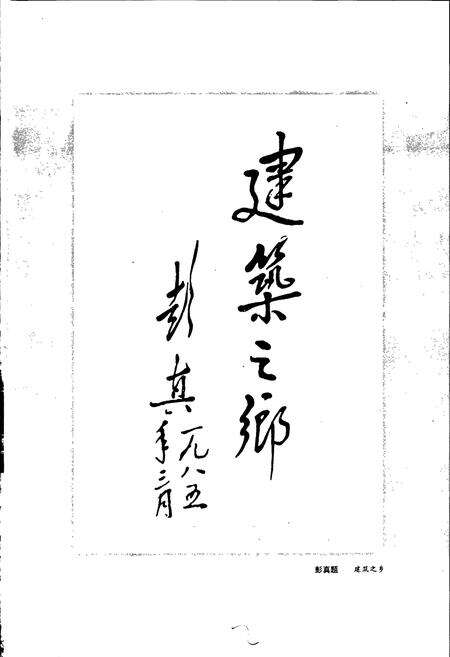 建築之鄉
彭真
一九八五
年三月
彭真题 建筑之乡